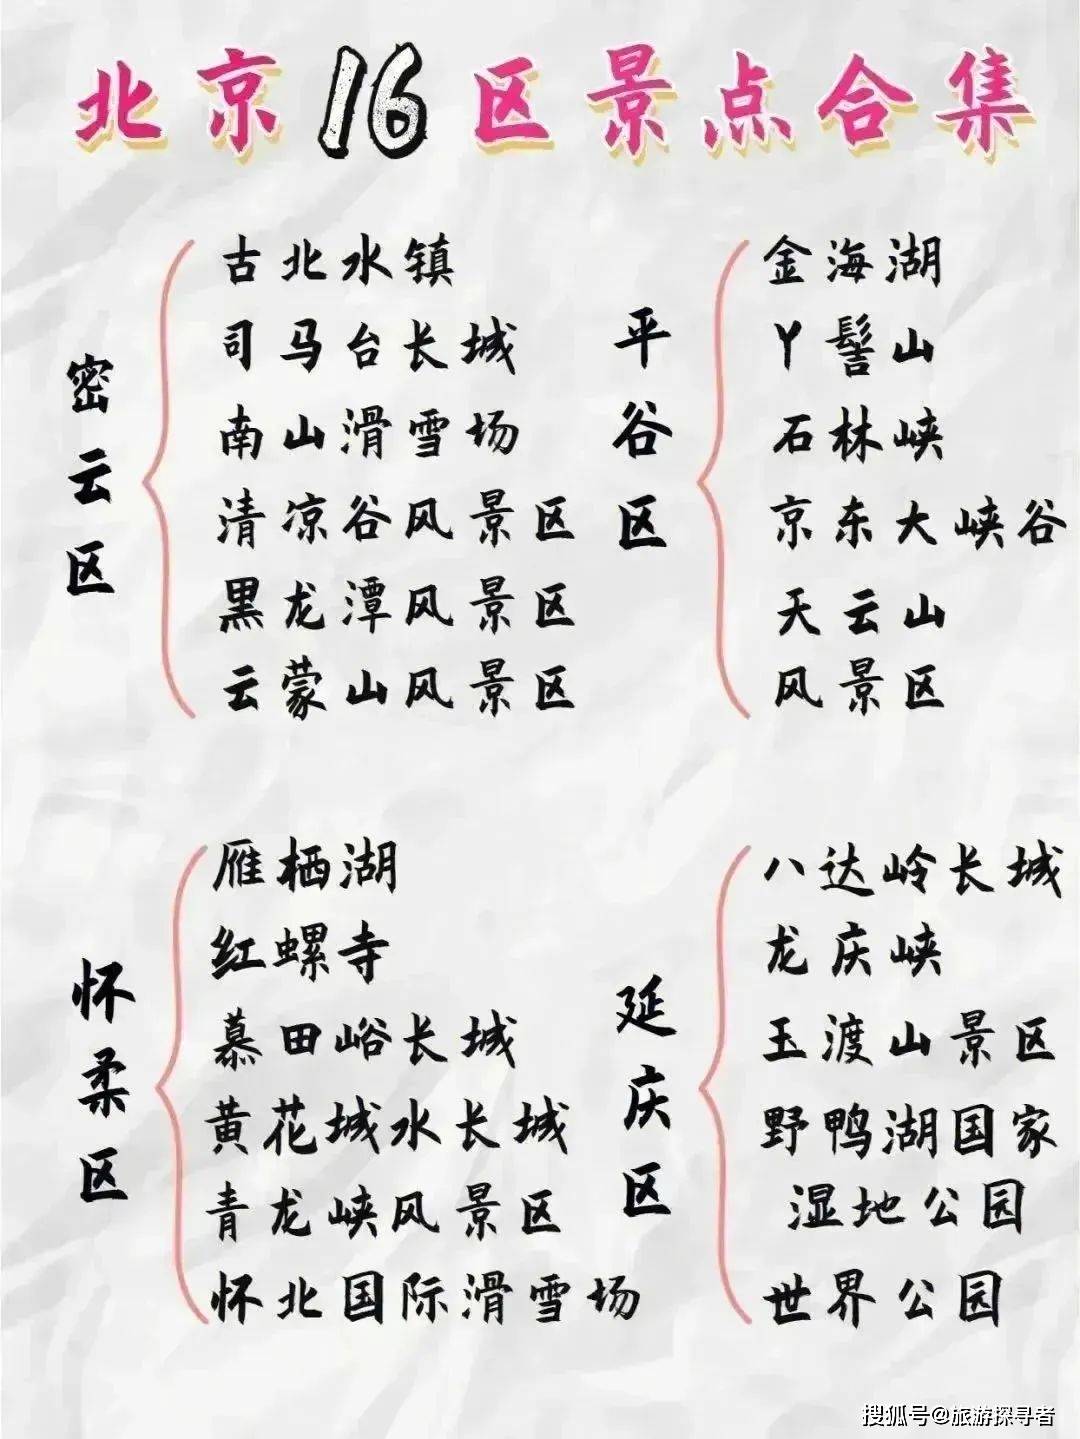 北京16区景点合集
密云区
古北水镇
司马台长城
南山滑雪场
清凉谷风景区
黑龙潭风景区
云蒙山风景区
平谷区
金海湖
丫髻山
石林峡
京东大峡谷
天云山
风景区
怀柔区
雁栖湖
红螺寺
慕田峪长城
黄花城水长城
青龙峡风景区
怀北国际滑雪场
延庆区
八达岭长城
龙庆峡
玉渡山景区
野鸭湖国家
湿地公园
世界公园
搜狐号@旅游探寻者